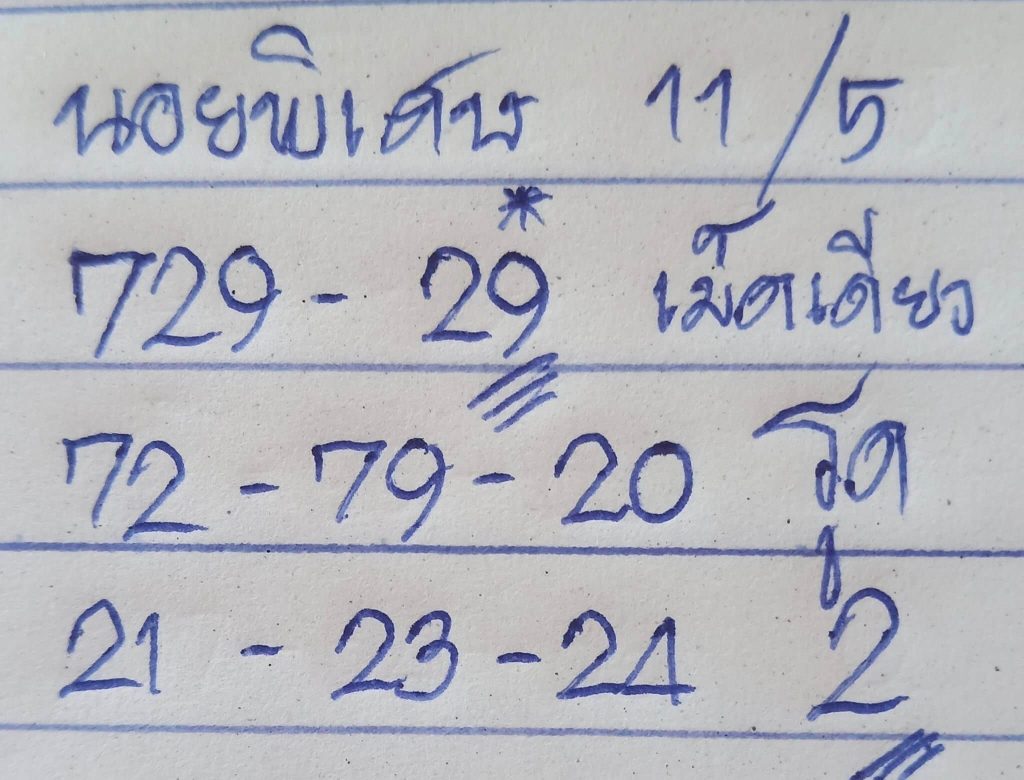 นอยพิเศษ 11/5
729 - 29* เม็ดเดียว
72 - 79 - 20 รูด
21 - 23 - 24 2